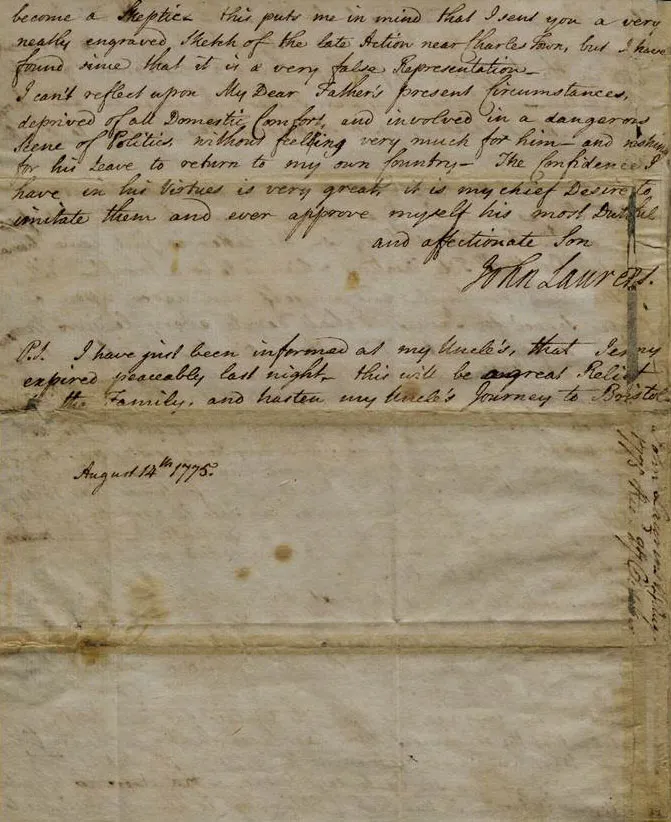 become a Skeptic – this puts me in mind that I sent you a very
neatly engraved Sketch of the late Action near Charles Town, but I have
found since that it is a very false Representation –
I can't reflect upon My Dear Father's present Circumstances,
deprived of all Domestic Comfort, and involved in a dangerous
Scene of Politics without feeling very much for him – and wishing
for his Leave to return to my own Country – The Confidence I
have in his Virtues is very great, it is my chief Desire to
imitate them and ever approve myself his most Dutiful
and affectionate Son
John Laurens.
P.S. I have just been informed at my Uncle's, that Jenny
expired peaceably last night – this will be a great Relief
to the Family, and hasten my Uncle's Journey to Bristol –
August 14th 1775.